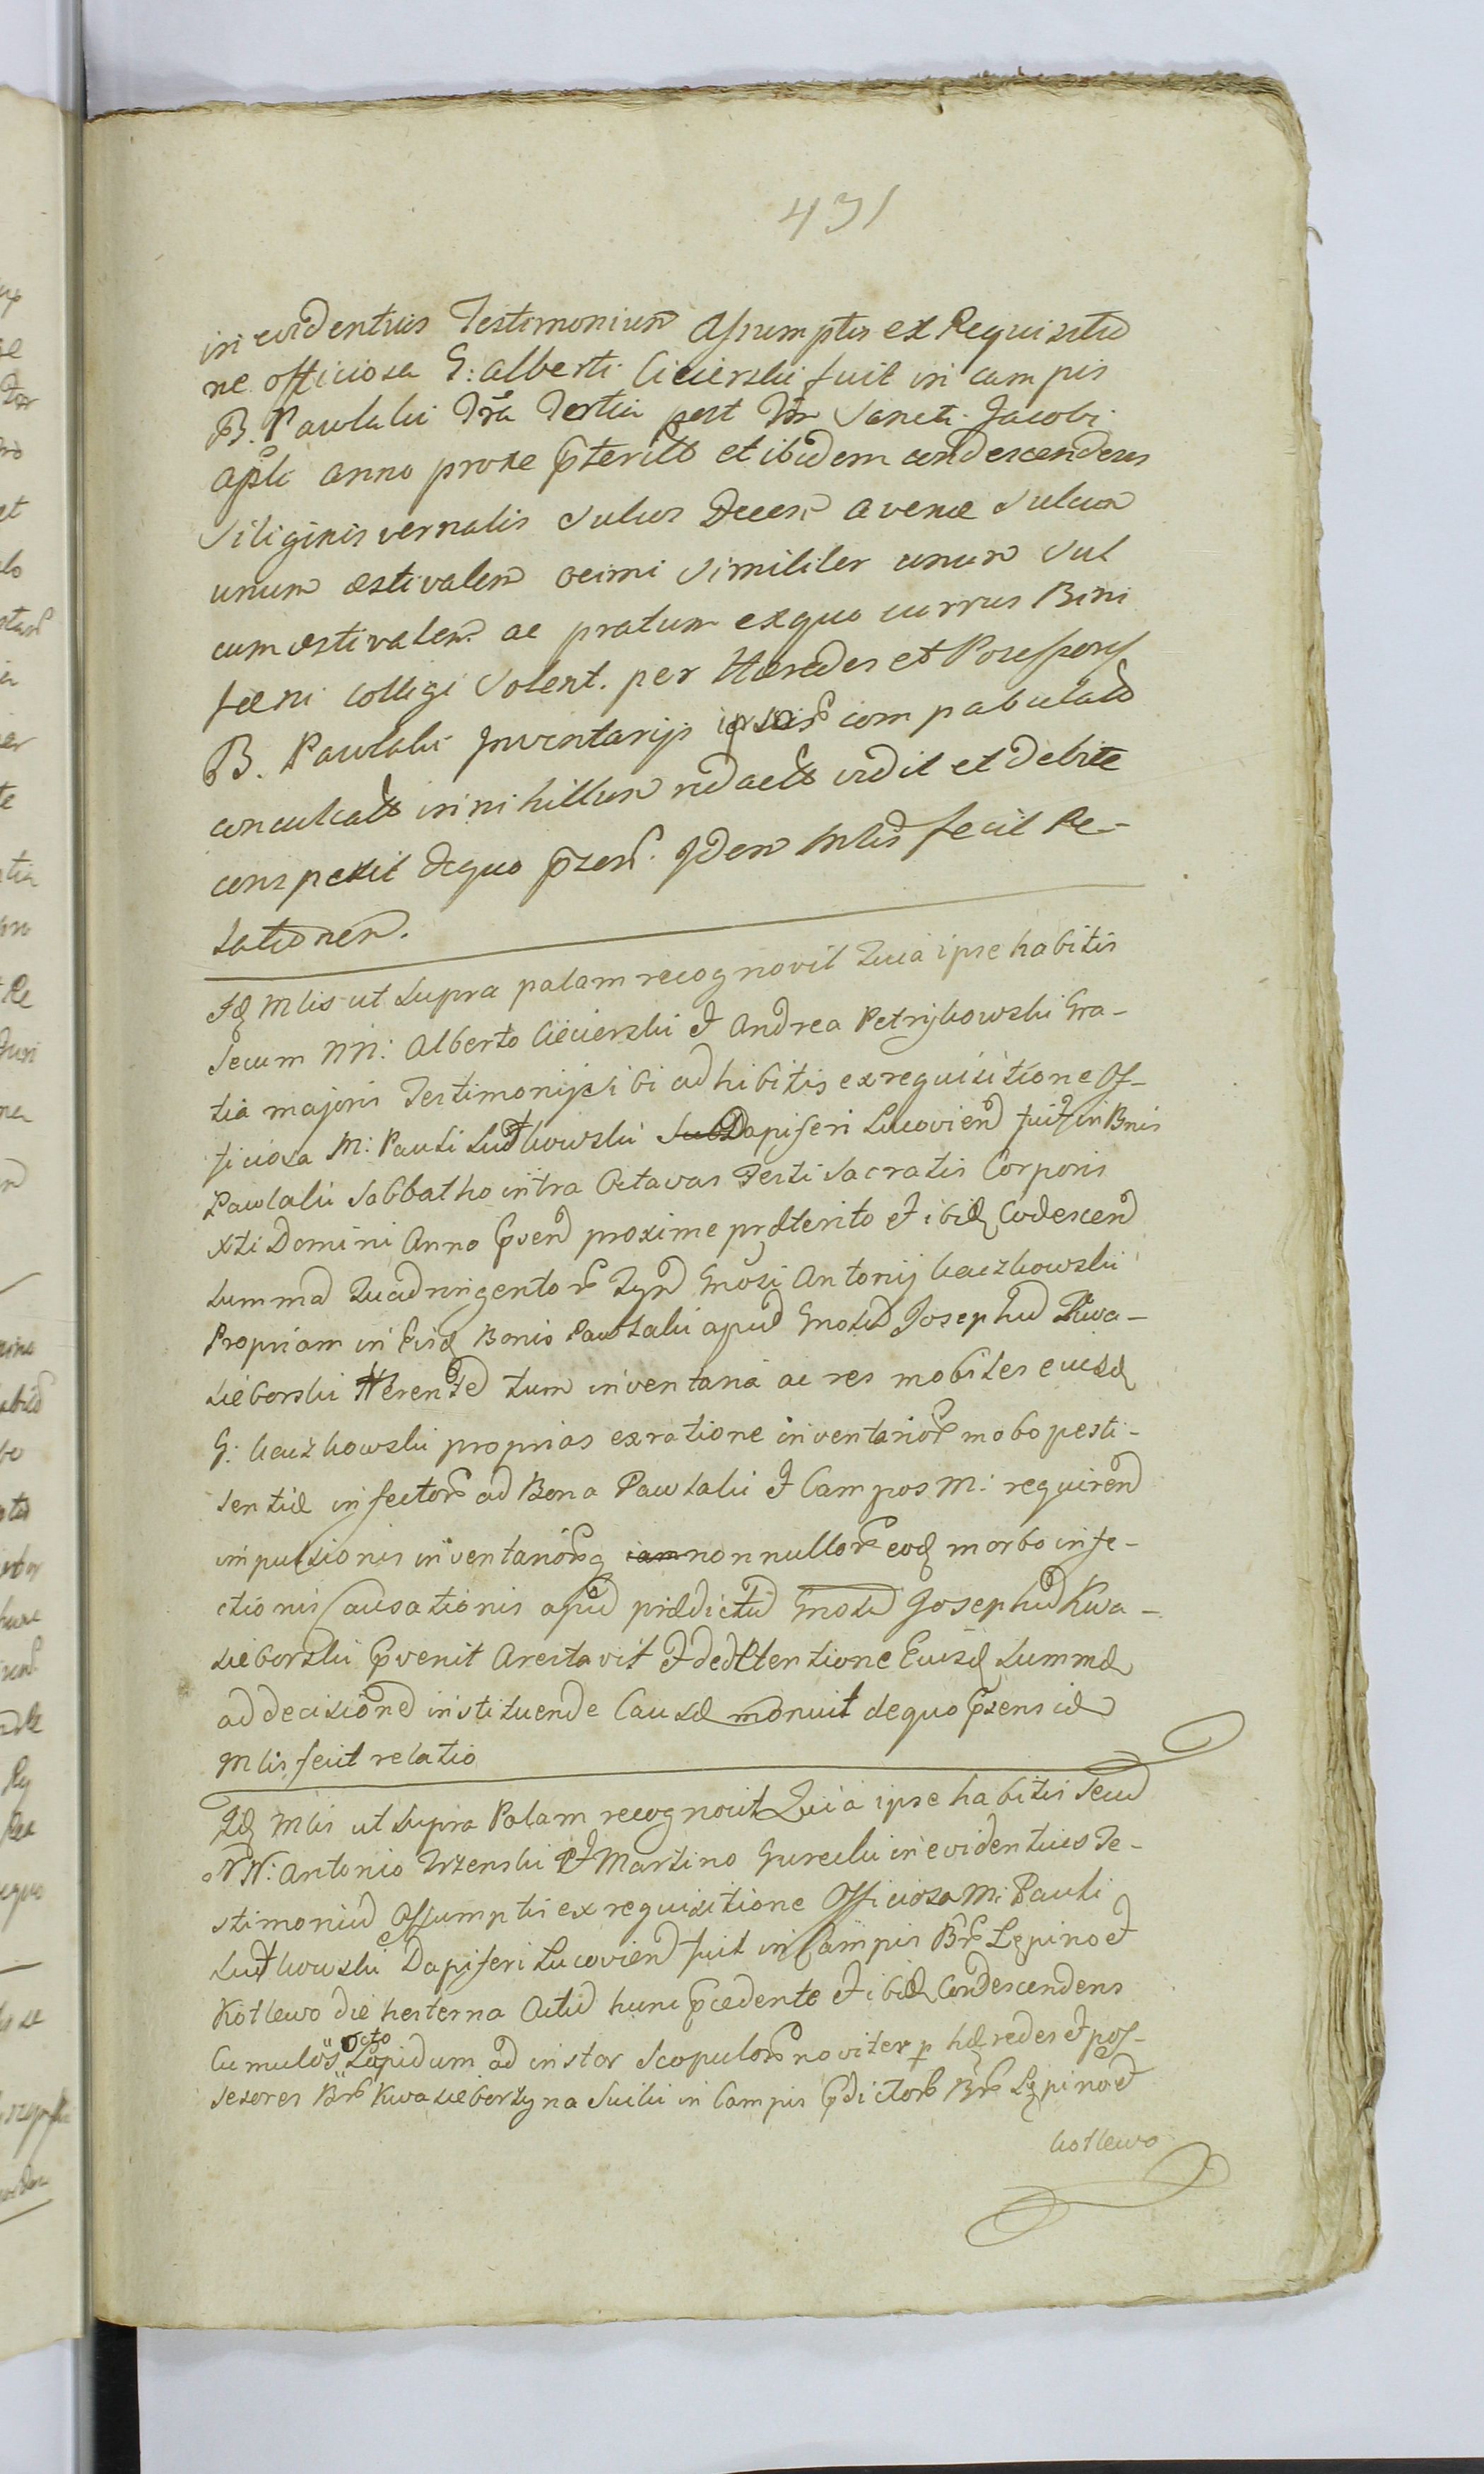 431
in evidentius Testimonium Assumptis ex Requisitio
ne officiosa G: Alberti Cieierski fuit in campis
B. Pawlaki Fra Tertia post Fm Sancti Jacobi
Apli anno proxe pterito et ibidem condescendens
Siliginis vernalis Sulcos Decem avenæ Sulcum
unum æstivalem Similiter unum Sul
cum æstivalem ac pratum exquo currus Bini
fæni colligi Solent. per Hæredes et Possessores
B. Pawlaki Inventarijs ipsor compabulato
conculcato in nihillum redacto vidit et debite
conspexit dequo pzens. Idem Mlis fecit Re-
lationem.
Id Mlis ut Supra palam recognovit Quia ipse habitis
Secum NN: Alberto Cieierski et Andrea Petrykowski Gra-
tia majoris Testimonij Sibi adhibitis ex requisitione Of-
ficiosa M: Pauli Ludkowski Dapiferi Lucovien fuit in Bnis
Pawlaki Sabbatho intra Octavas Festi Sacratis Corporis
Xti Domini Anno psen proxime præterito et ibid Codescend
Summa Quadringentor Tyn Gnosi Antonij Kaczkowski
Propriam in Eisd Bonis Pawlaki apud Gnosu Josephu Kwa-
sieborski Hærente tum inventaria ac res mobiles eiusd
G: Kaczkowski proprias ex ratione inventarior mobo pesti-
lentiæ infector ad Bona Pawlaki et Campos M: requirend
impulsionis inventariorq nonnullor eod morbo infe-
ctionis Causationis apud prædictu Gnosu Josephu Kwa-
sieborski pvenit Arestavit et de detentione Eiusd Summæ
ad decisione instituende Causæ monuit dequo pzens id
Mlis fecit relatio
Id Mlis ut Supra Palam recognovit Quia ipse habitis Secu
NN: Antonio Trzenski et Martino Gurecki in evidentius Te-
stimoniu Assumptis ex requisitione Officiosa M: Pauli
Ludkowski Dapiferi Lucovien fuit in Campis Br Lępino et
Kotlewo die hesterna Actu hunc pcedente et ibid Condescendens
Cumulos octo Lapidum ad instar Scopulor noviter p hæredes et pos-
sesores Br Kwasieborzyna Suiki in Campis pdictor Br Lępino et
Kotlewo